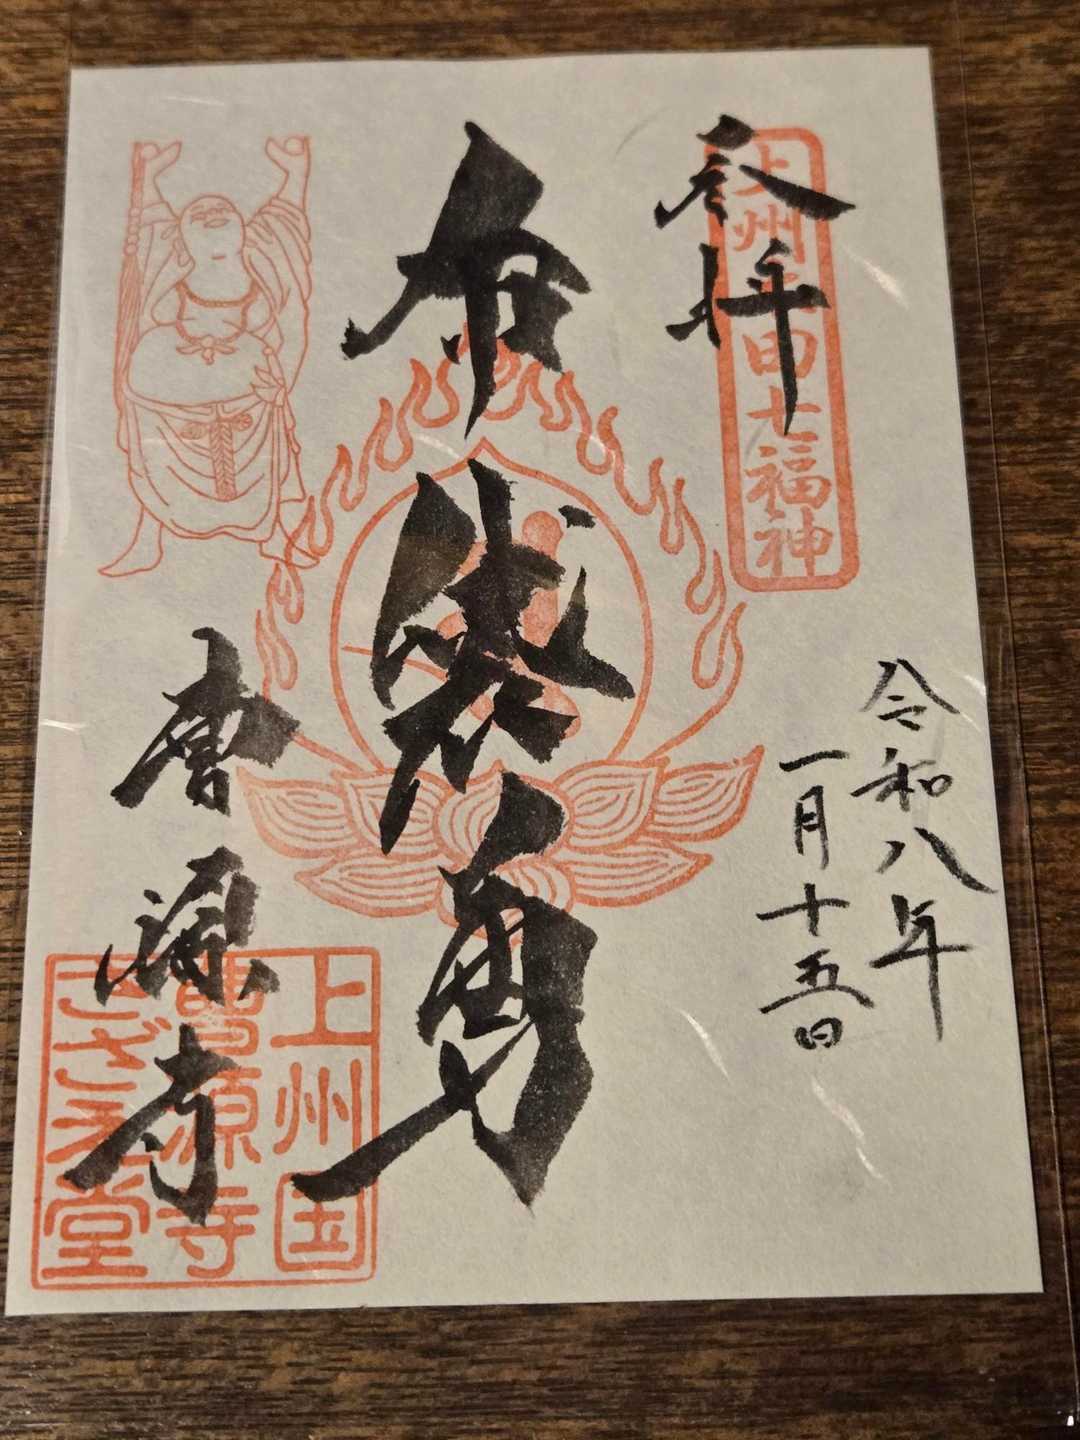 参拝
上州太田七福神
令和八年
一月十五日
布袋尊
曹源寺
上州国
曹源寺
さざえ堂